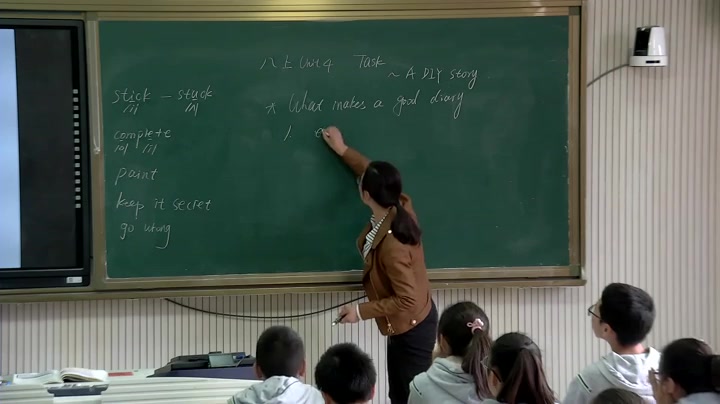 八上 Unit 4 Task
~ A DIY story.
stick - stuck
/ɪ/ /ʌ/
complete
/ə/ /iː/
paint
keep it secret
go wrong
* What makes a good diary
1.